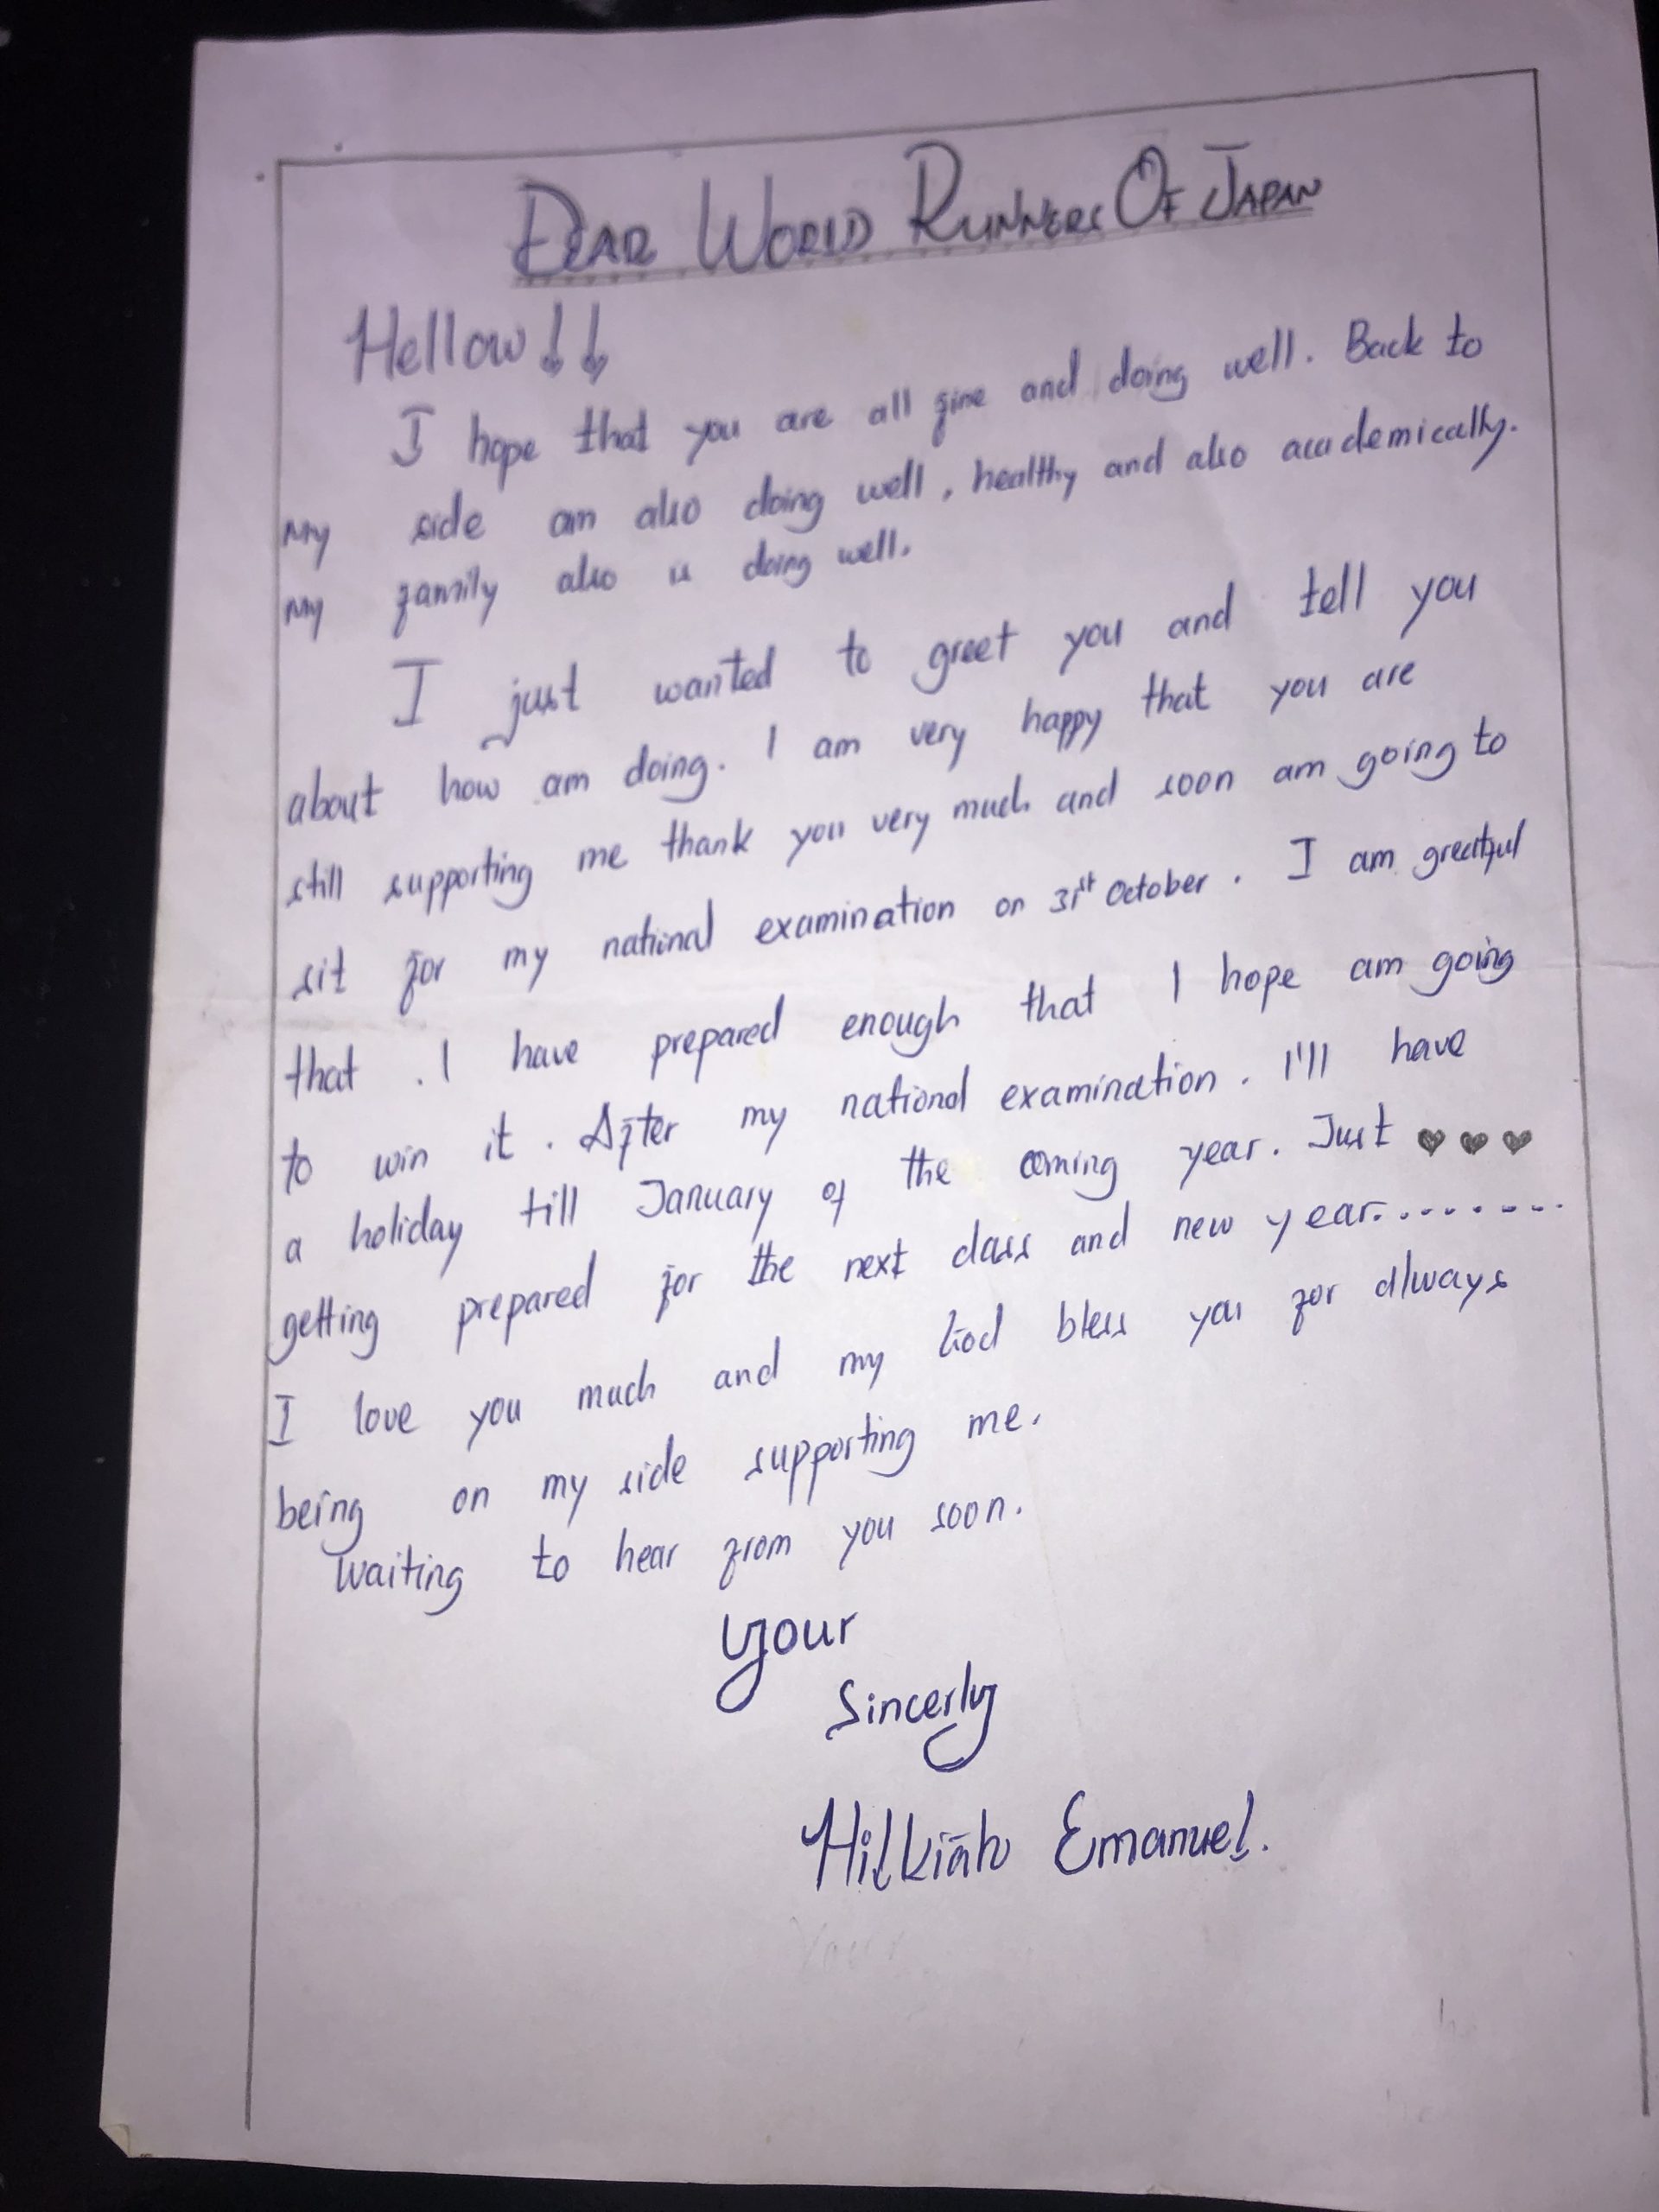 DEAR WORLD RUNNERS OF JAPAN
Hellow!!
I hope that you are all fine and doing well. Back to
my side am also doing well, healthy and also academically.
my family also is doing well.
I just wanted to greet you and tell you
about how am doing. I am very happy that you are
still supporting me thank you very much and soon am going to
sit for my national examination on 31st October. I am greatful
that. I have prepared enough that I hope am going
to win it. After my national examination. I'll have
a holiday till January of the coming year. Just ♥♥♥
getting prepared for the next class and new year.........
I love you much and my God bless you for always
being on my side supporting me.
Waiting to hear from you soon.
Your
Sincerly
Hilkiah Emanuel.
Your